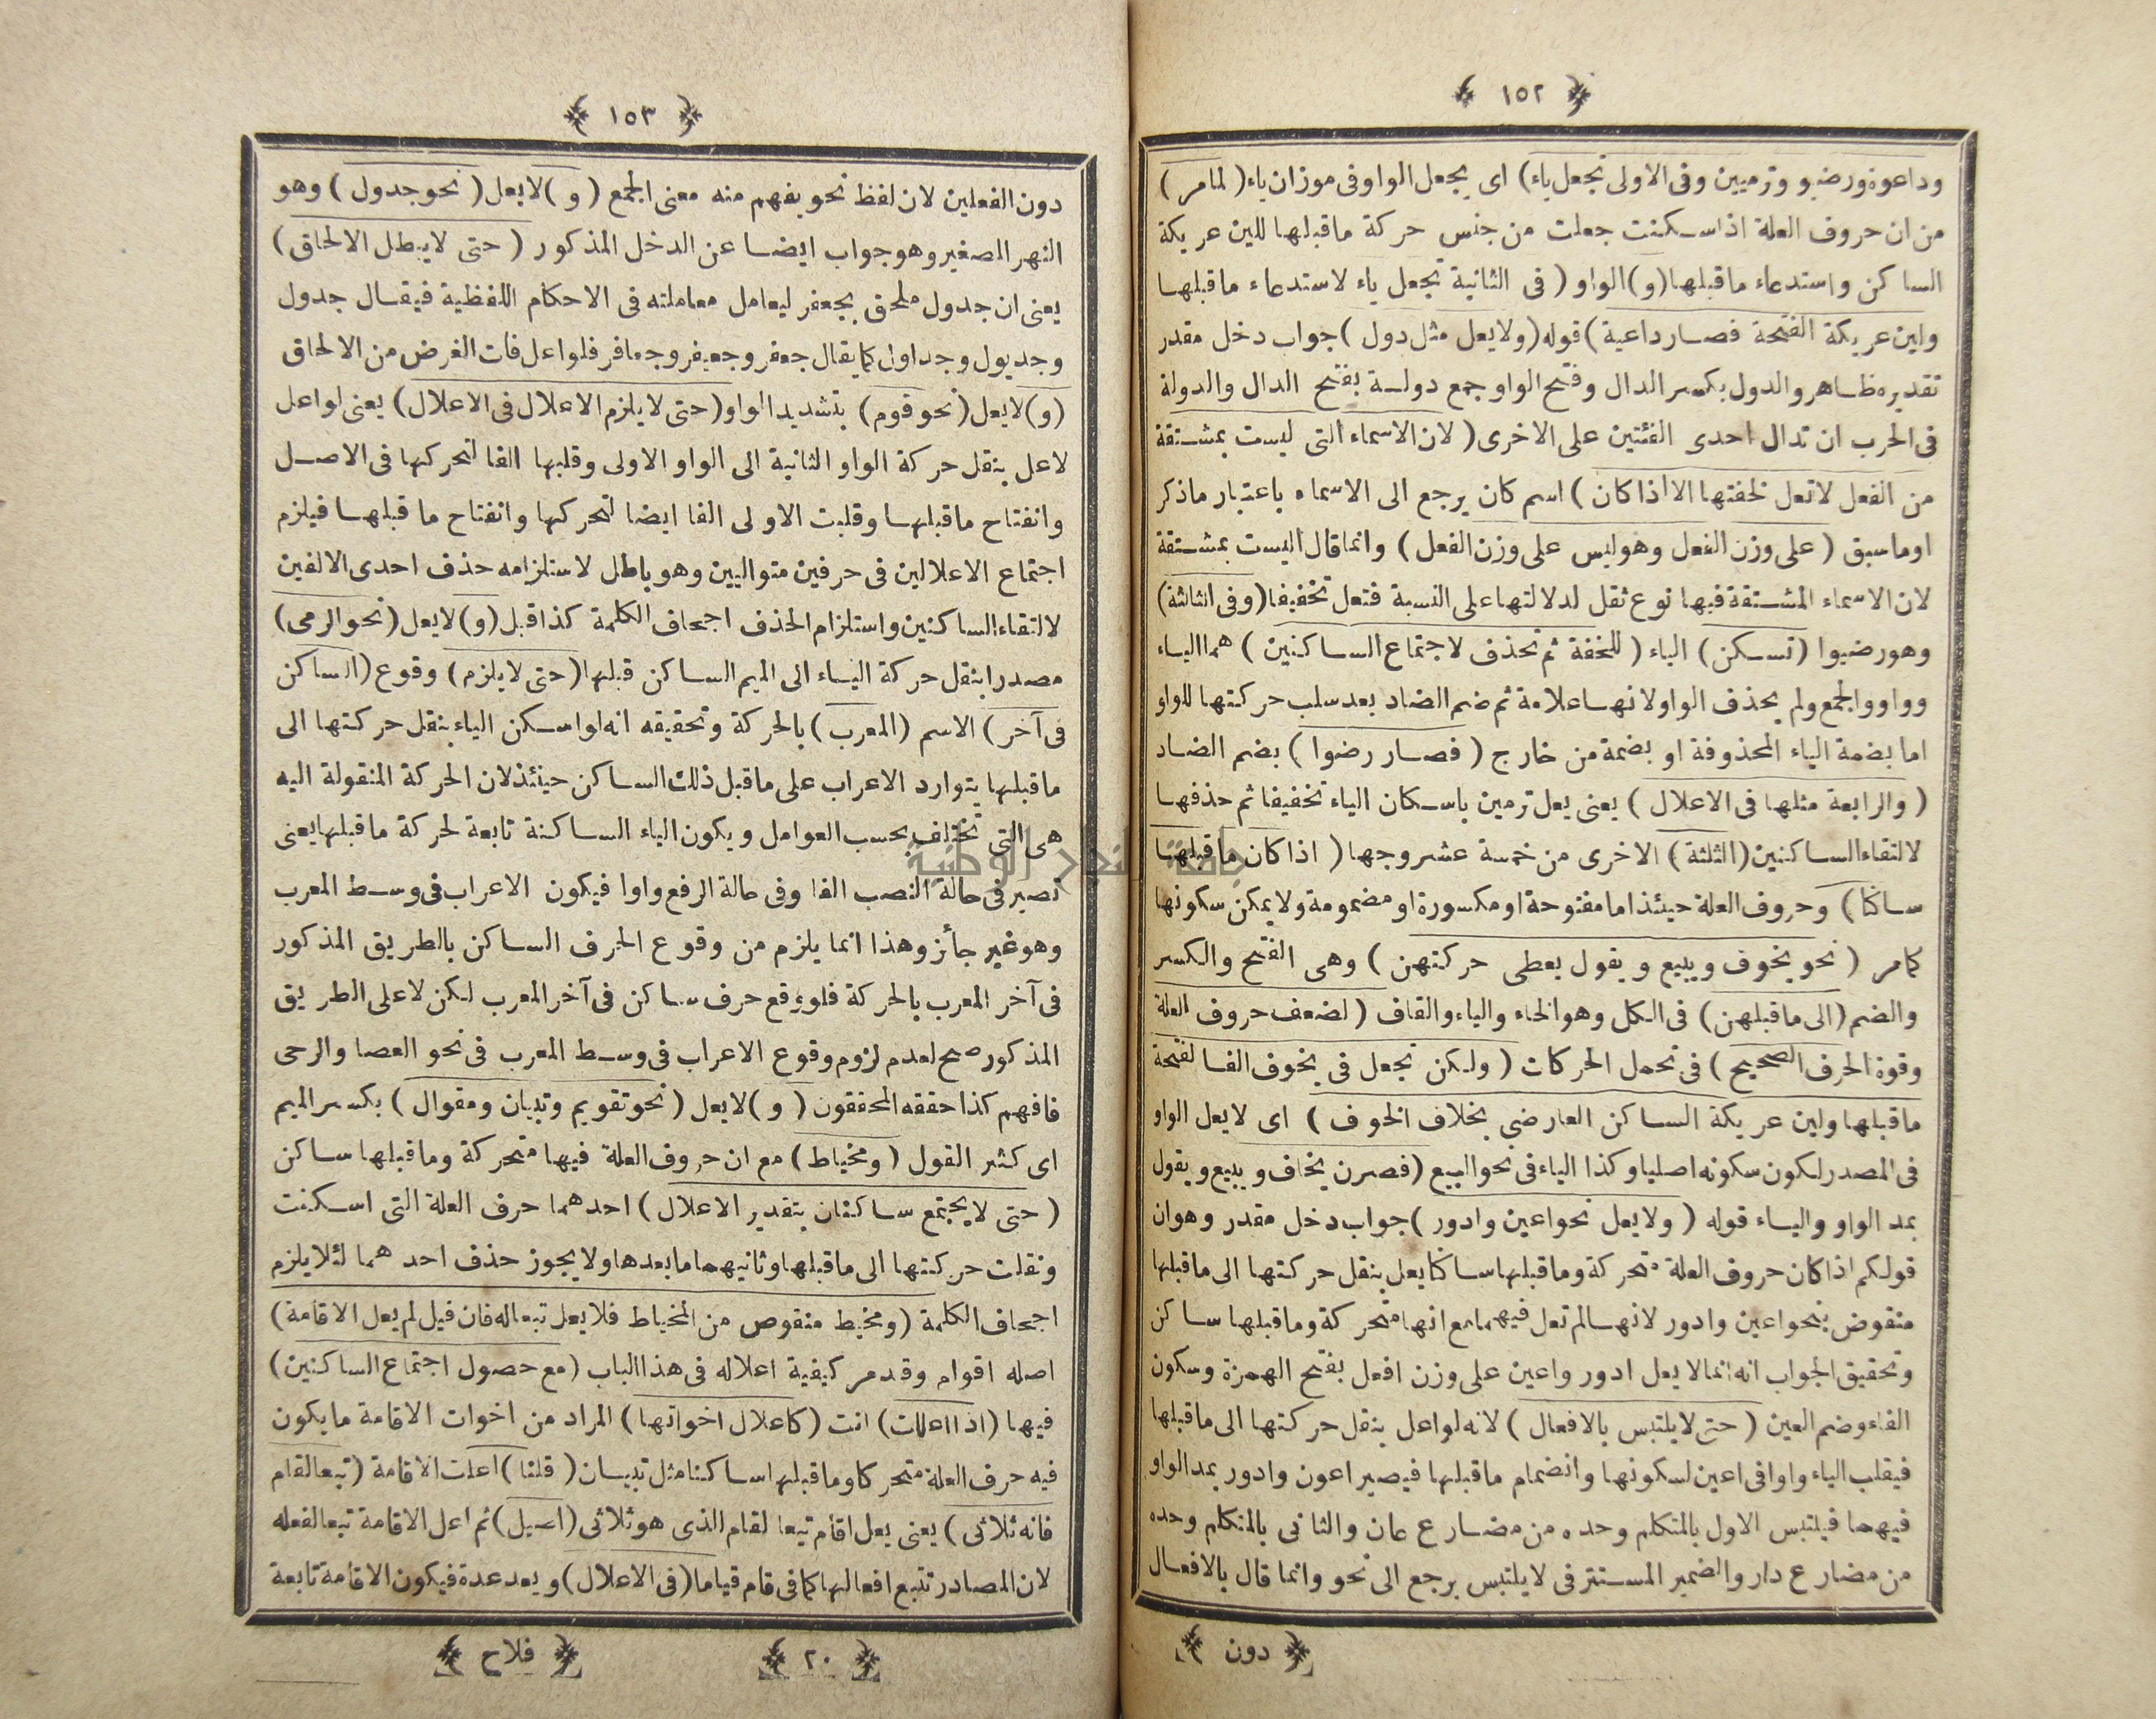 ﴿ ١٥٢ ﴾
وداعوة ورضيو وترميين وفى الاولى تجعل ياء) اى يجعل الواو فى موزان ياء (لمامر)
من ان حروف العلة اذا سكنت جعلت من جنس حركة ماقبلها للين عريكة
الساكن واستدعاء ماقبلها (و) الواو (فى الثانية تجعل ياء لاستدعاء ماقبلها
ولين عريكة الفتحة فصار داعية) قوله (ولايعل مثل دول) جواب دخل مقدر
تقديره ظاهر والدول بكسر الدال وفتح الواو جمع دولة بفتح الدال والدولة
فى الحرب ان تدال احدى الفئتين على الاخرى (لان الاسماء التى ليست بمشتقة
من الفعل لاتعل لخفتها الا اذا كان) اسم كان يرجع الى الاسماء باعتبار ماذكر
اوماسبق (على وزن الفعل وهوليس على وزن الفعل) وانما قال ليست بمشتقة
لان الاسماء المشتقة فيها نوع ثقل لدلالتها على النسبة فتعل تخفيفا (وفى الثالثة)
وهو رضيوا (تسكن) الياء (للخفة ثم تحذف لاجتماع الساكنين) هما الياء
وواو والجمع ولم يحذف الواو لانها علامة ثم ضم الضاد بعد سلب حركتها للواو
اما بضمة الياء المحذوفة او بضمة من خارج (فصار رضوا) بضم الضاد
(والرابعة مثلها فى الاعلال) يعنى يعل ترمين باسكان الياء تخفيفا ثم حذفها
لالتقاء الساكنين (الثلثة) الاخرى من خمسة عشر وجها (اذا كان ماقبلها
ساكنا) وحروف العلة حينئذ اما مفتوحة او مكسورة او مضمومة ولايمكن سكونها
كمامر (نحو يخوف ويبيع ويقول يعطى حركتهن) وهى الفتح والكسر
والضم (الى ماقبلهن) فى الكل وهو الخاء والباء والقاف (لضعف حروف العلة
وقوة الحرف الصحيح) فى تحمل الحركات (ولكن تجعل فى يخوف الفا لفتحة
ماقبلها ولين عريكة الساكن العارضى بخلاف الخوف) اى لايعل الواو
فى المصدر لكون سكونه اصليا وكذا الياء فى نحو البيع (فصرن يخاف ويبيع ويقول
بمد الواو والياء قوله (ولايعل نحو اعين وادور) جواب دخل مقدر وهو ان
قولكم اذا كان حروف العلة متحركة وماقبلها ساكنا يعل بنقل حركتها الى ماقبلها
منقوض بنحو اعين وادور لانها لم تعل فيهما مع انها متحركة وماقبلها ساكن
وتحقيق الجواب انه انما لايعل ادور واعين على وزن افعل بفتح الهمزة وسكون
الفاء وضم العين (حتى لايلتبس بالافعال) لانه لواعل بنقل حركتها الى ماقبلها
فيقلب الياء واوا فى اعين لسكونها وانضمام ماقبلها فيصير اعون وادور بمد الواو
فيهما فيلتبس الاول بالمتكلم وحده من مضارع عان والثانى بالمتكلم وحده
من مضارع دار والضمير المستتر فى لايلتبس يرجع الى نحو وانما قال بالافعال
﴿ دون ﴾
﴿ ١٥٣ ﴾
دون الفعلين لان لفظ نحو يفهم منه معنى الجمع (و) لايعل (نحو جدول) وهو
النهر الصغير وهو جواب ايضا عن الدخل المذكور (حتى لايبطل الالحاق)
يعنى ان جدول ملحق بجعفر ليعامل معاملته فى الاحكام اللفظية فيقال جدول
وجديول وجداول كما يقال جعفر وجعيفر وجعافر فلواعل فات الغرض من الالحاق
(و) لايعل (نحو قوم) بتشديد الواو (حتى لايلزم الاعلال فى الاعلال) يعنى لواعل
لاعل بنقل حركة الواو الثانية الى الواو الاولى وقلبها الفا لتحركها فى الاصل
وانفتاح ماقبلها وقلبت الاولى الفا ايضا لتحركها وانفتاح ماقبلها فيلزم
اجتماع الاعلالين فى حرفين متواليين وهو باطل لاستلزامه حذف احدى الالفين
لالتقاء الساكنين واستلزام الحذف اجحاف الكلمة كذا قيل (و) لايعل (نحو الرمى)
مصدرا بنقل حركة الياء الى الميم الساكن قبلها (حتى لايلزم) وقوع (الساكن
فى آخر) الاسم (المعرب) بالحركة وتحقيقه انه لواسكن الياء بنقل حركتها الى
ماقبلها يتوارد الاعراب على ماقبل ذلك الساكن حينئذ لان الحركة المنقولة اليه
هى التى تختلف بحسب العوامل ويكون الياء الساكنة تابعة لحركة ماقبلها يعنى
تصير فى حالة النصب الفا وفى حالة الرفع واوا فيكون الاعراب فى وسط المعرب
وهو غير جائز وهذا انما يلزم من وقوع الحرف الساكن بالطريق المذكور
فى آخر المعرب بالحركة فلووقع حرف ساكن فى آخر المعرب لكن لاعلى الطريق
المذكور صح لعدم لزوم وقوع الاعراب فى وسط المعرب فى نحو العصا والرحى
فافهم كذا حققه المحققون (و) لايعل (نحو تقويم وتبيان ومقوال) بكسر الميم
اى كثير القول (ومخياط) مع ان حروف العلة فيها متحركة وماقبلها ساكن
(حتى لايجتمع ساكنان بتقدير الاعلال) احدهما حرف العلة التى اسكنت
ونقلت حركتها الى ماقبلها وثانيهما مابعدها ولايجوز حذف احدهما لئلا يلزم
اجحاف الكلمة (ومخيط منقوص من المخياط فلايعل تبعاله فان قيل لم يعل الاقامة)
اصله اقوام وقدمر كيفية اعلاله فى هذا الباب (مع حصول اجتماع الساكنين)
فيها (اذا اعللت) انت (كاعلال اخواتها) المراد من اخوات الاقامة مايكون
فيه حرف العلة متحركا وماقبلها ساكنا مثل تبيان (قلنا) اعلت الاقامة (تبعا لقام
فانه ثلاثى) يعنى يعل اقام تبعا لقام الذى هو ثلاثى (اصيل) ثم اعل الاقامة تبعا لفعله
لان المصادر تتبع افعالها كما فى قام قياما (فى الاعلال) وبعد عدة فيكون الاقامة تابعة
﴿ ٢٠ ﴾ ﴿ فلاح ﴾
جامعة النجاح الوطنية